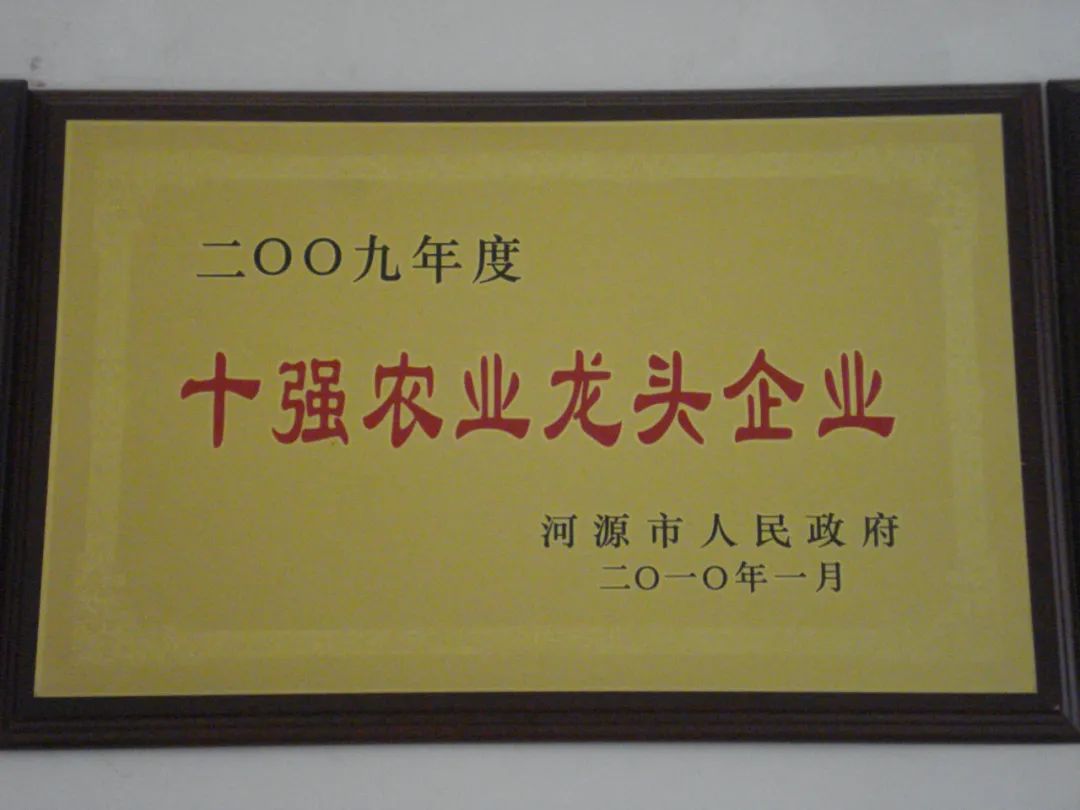 二〇〇九年度
十强农业龙头企业
河源市人民政府
二〇一〇年一月